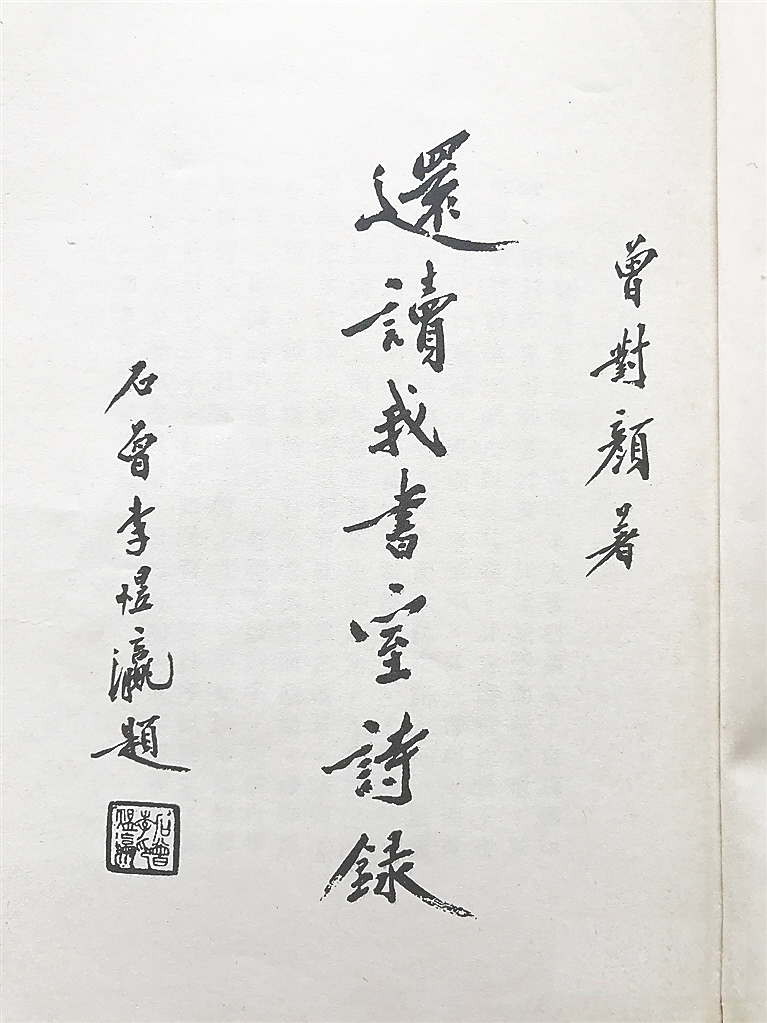 曾對顏著
還讀我書室詩錄
石曾李煜瀛題
石曾李煜瀛